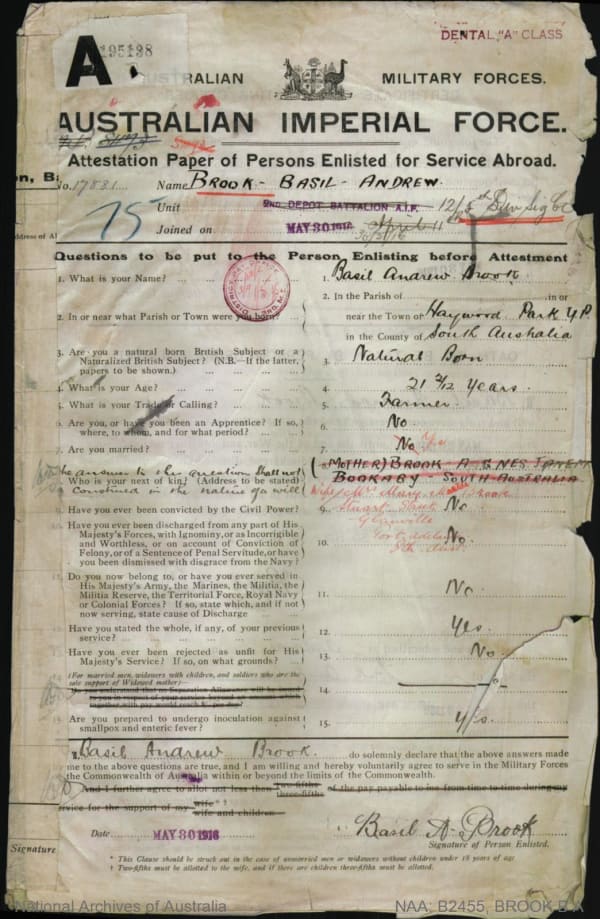 DENTAL "A" CLASS
A
195138
RALIAN MILITARY FORCES.
AUSTRALIAN IMPERIAL FORCE.
Attestation Paper of Persons Enlisted for Service Abroad.
No. 17831 Name BROOK - BASIL - ANDREW.
Unit 2ND DEPOT BATTALION A.I.F. 12/5th Div Sig Co
75
Joined on MAY 30 1916 April 11
30/5/16
Questions to be put to the Person Enlisting before Attestment
1. What is your Name? 1. Basil Andrew Brook
2. In or near what Parish or Town were you born? 2. In the Parish of in or
near the Town of Haywood Park Y.P.
in the County of South Australia
3. Are you a natural born British Subject or a
Naturalized British Subject? (N.B.—If the latter,
papers to be shown.) 3. Natural Born
4. What is your Age? 4. 21 2/12 Years.
5. What is your Trade or Calling? 5. Farmer.
6. Are you, or have you been an Apprentice? If so,
where, to whom, and for what period? 6. No.
7. Are you married? 7. No Yes
the answer to the question shall not
Who is your next of kin? (Address to be stated)
Construed in the nature of a will
(MOTHER) BROOK AGNES
BOOKABY SOUTH AUSTRALIA
Wife Mrs Brook
Stuart Street
Glanville
Port Adelaide
Sth Aust
8. Have you ever been convicted by the Civil Power? 9. No
Have you ever been discharged from any part of His
Majesty's Forces, with Ignominy, or as Incorrigible
and Worthless, or on account of Conviction of
Felony, or of a Sentence of Penal Servitude, or have
you been dismissed with disgrace from the Navy? 10. No.
Do you now belong to, or have you ever served in
His Majesty's Army, the Marines, the Militia, the
Militia Reserve, the Territorial Force, Royal Navy
or Colonial Forces? If so, state which, and if not
now serving, state cause of Discharge 11. No.
Have you stated the whole, if any, of your previous
service? 12. Yes.
Have you ever been rejected as unfit for His
Majesty's Service? If so, on what grounds? 13. No.
(For married men, widowers with children, and soldiers who are the
sole support of Widowed mother)—
14.
Are you prepared to undergo inoculation against
smallpox and enteric fever? 15. Yes.
I, Basil Andrew Brook. do solemnly declare that the above answers made
me to the above questions are true, and I am willing and hereby voluntarily agree to serve in the Military Forces
the Commonwealth of Australia within or beyond the limits of the Commonwealth.
And I further agree to allot not less than Two-fifths three-fifths of the pay payable to me from time to time during my
service for the support of my wife wife and children
Date MAY 30 1916 Basil A. Brook
Signature of Person Enlisted.
Signature
* This Clause should be struck out in the case of unmarried men or widowers without children under 18 years of age
† Two-fifths must be allotted to the wife, and if there are children three-fifths must be allotted.
National Archives of Australia NAA: B2455, BROOK B A